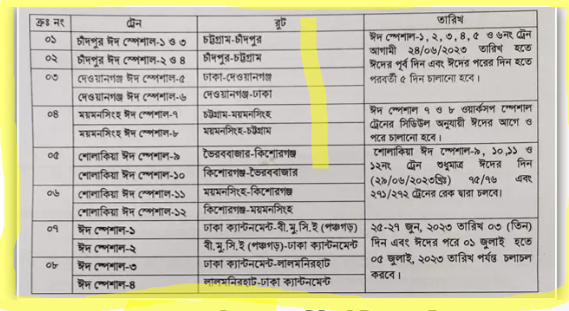 ক্রঃ নং ট্রেন রুট তারিখ
০১ চাঁদপুর ঈদ স্পেশাল-১ ও ৩ চট্টগ্রাম-চাঁদপুর
০২ চাঁদপুর ঈদ স্পেশাল-২ ও ৪ চাঁদপুর-চট্টগ্রাম
০৩ দেওয়ানগঞ্জ ঈদ স্পেশাল-৫ ঢাকা-দেওয়ানগঞ্জ
দেওয়ানগঞ্জ ঈদ স্পেশাল-৬ দেওয়ানগঞ্জ-ঢাকা
ঈদ স্পেশাল-১, ২, ৩, ৪, ৫ ও ৬নং ট্রেন
আগামী ২৪/০৬/২০২৩ তারিখ হতে
ঈদের পূর্ব দিন এবং ঈদের পরের দিন হতে
পরবর্তী ৫ দিন চালানো হবে।
০৪ ময়মনসিংহ ঈদ স্পেশাল-৭ চট্টগ্রাম-ময়মনসিংহ
ময়মনসিংহ ঈদ স্পেশাল-৮ ময়মনসিংহ-চট্টগ্রাম
ঈদ স্পেশাল ৭ ও ৮ ওয়ার্কসপ স্পেশাল
ট্রেনের সিডিউল অনুযায়ী ঈদের আগে ও
পরে চালানো হবে।
০৫ শোলাকিয়া ঈদ স্পেশাল-৯ ভৈরববাজার-কিশোরগঞ্জ
শোলাকিয়া ঈদ স্পেশাল-১০ কিশোরগঞ্জ-ভৈরববাজার
০৬ শোলাকিয়া ঈদ স্পেশাল-১১ ময়মনসিংহ-কিশোরগঞ্জ
শোলাকিয়া ঈদ স্পেশাল-১২ কিশোরগঞ্জ-ময়মনসিংহ
শোলাকিয়া ঈদ স্পেশাল-৯, ১০,১১ ও
১২নং ট্রেন শুধুমাত্র ঈদের দিন
(২৯/০৬/২০২৩খ্রিঃ) ৭৫/৭৬ এবং
২৭১/২৭২ ট্রেনের রেক দ্বারা চলবে।
০৭ ঈদ স্পেশাল-১ ঢাকা ক্যান্টনমেন্ট-বী.মু.সি.ই (পঞ্চগড়)
ঈদ স্পেশাল-২ বী.মু.সি.ই (পঞ্চগড়)-ঢাকা ক্যান্টনমেন্ট
০৮ ঈদ স্পেশাল-৩ ঢাকা ক্যান্টনমেন্ট-লালমনিরহাট
ঈদ স্পেশাল-৪ লালমনিরহাট-ঢাকা ক্যান্টনমেন্ট
২৫-২৭ জুন, ২০২৩ তারিখ ০৩ (তিন)
দিন এবং ঈদের পরে ০১ জুলাই হতে
০৫ জুলাই, ২০২৩ তারিখ পর্যন্ত চলাচল
করবে।